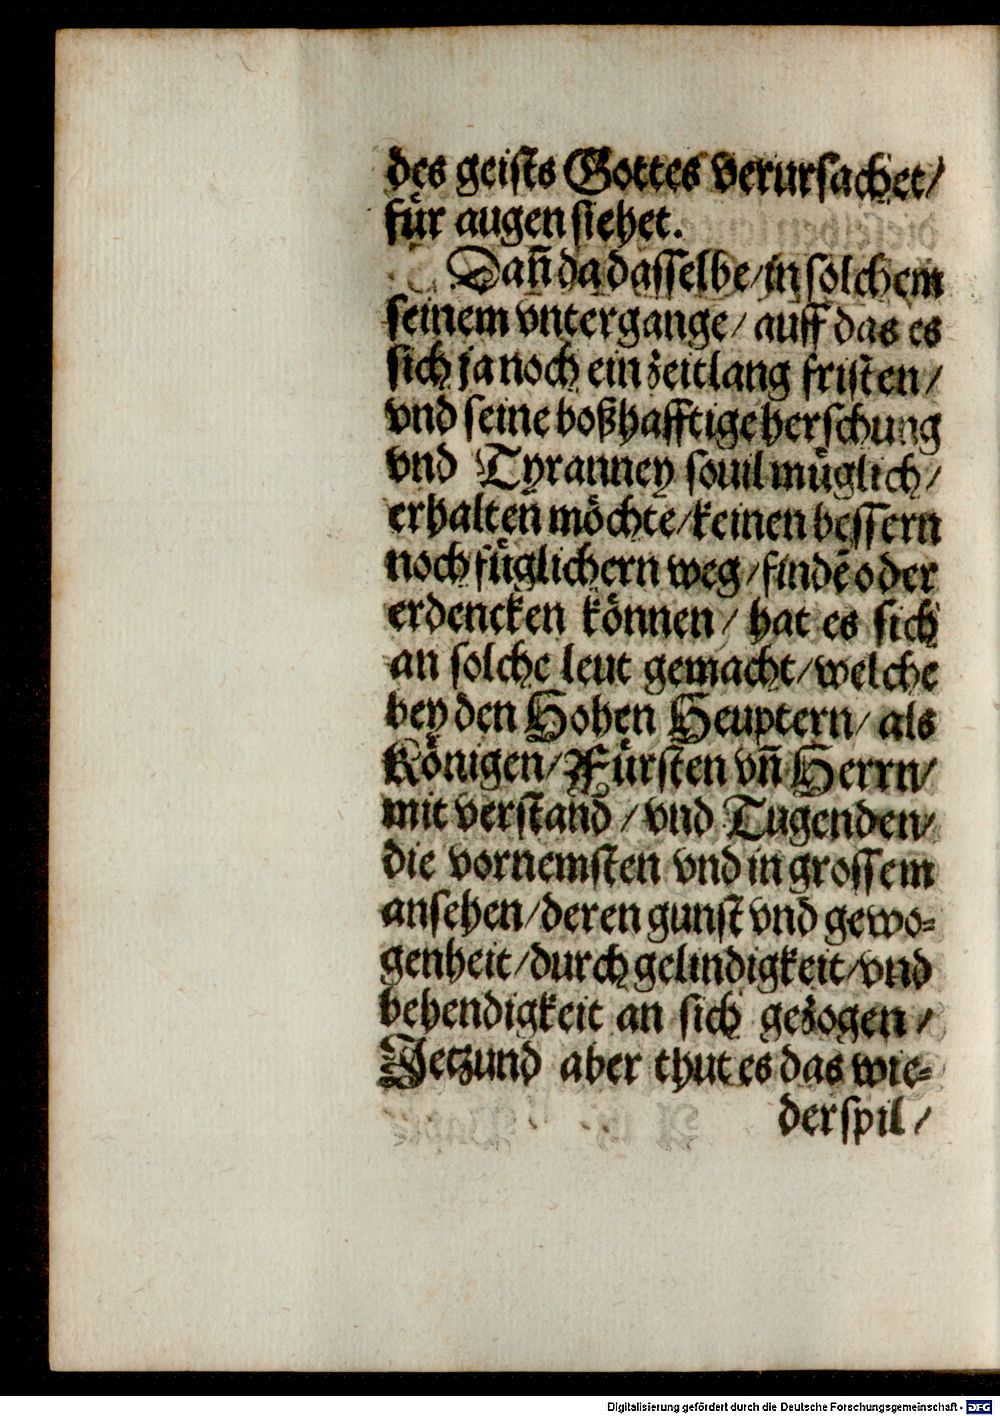 des geists Gottes verursachet/
für augen siehet.
Dañ da dasselbe/in solchem
seinem vntergange/ auff das es
sich ja noch ein zeitlang fristen/
vnd seine boßhafftige herschung
vnd Tyranney souil müglich/
erhalten möchte/keinen bessern
noch füglichern weg/findẽ oder
erdencken können/ hat es sich
an solche leut gemacht/welche
bey den Hohen Heuptern/ als
Königen/Fürsten vñ Herrn/
mit verstand/vnd Tugenden/
die vornemsten vnd in grossem
ansehen/deren gunst vnd gewo-
genheit/durch gelindigkeit/vnd
behendigkeit an sich gezogen/
Jetzund aber thut es das wie-
derspil/
Digitalisierung gefördert durch die Deutsche Forschungsgemeinschaft - DFG